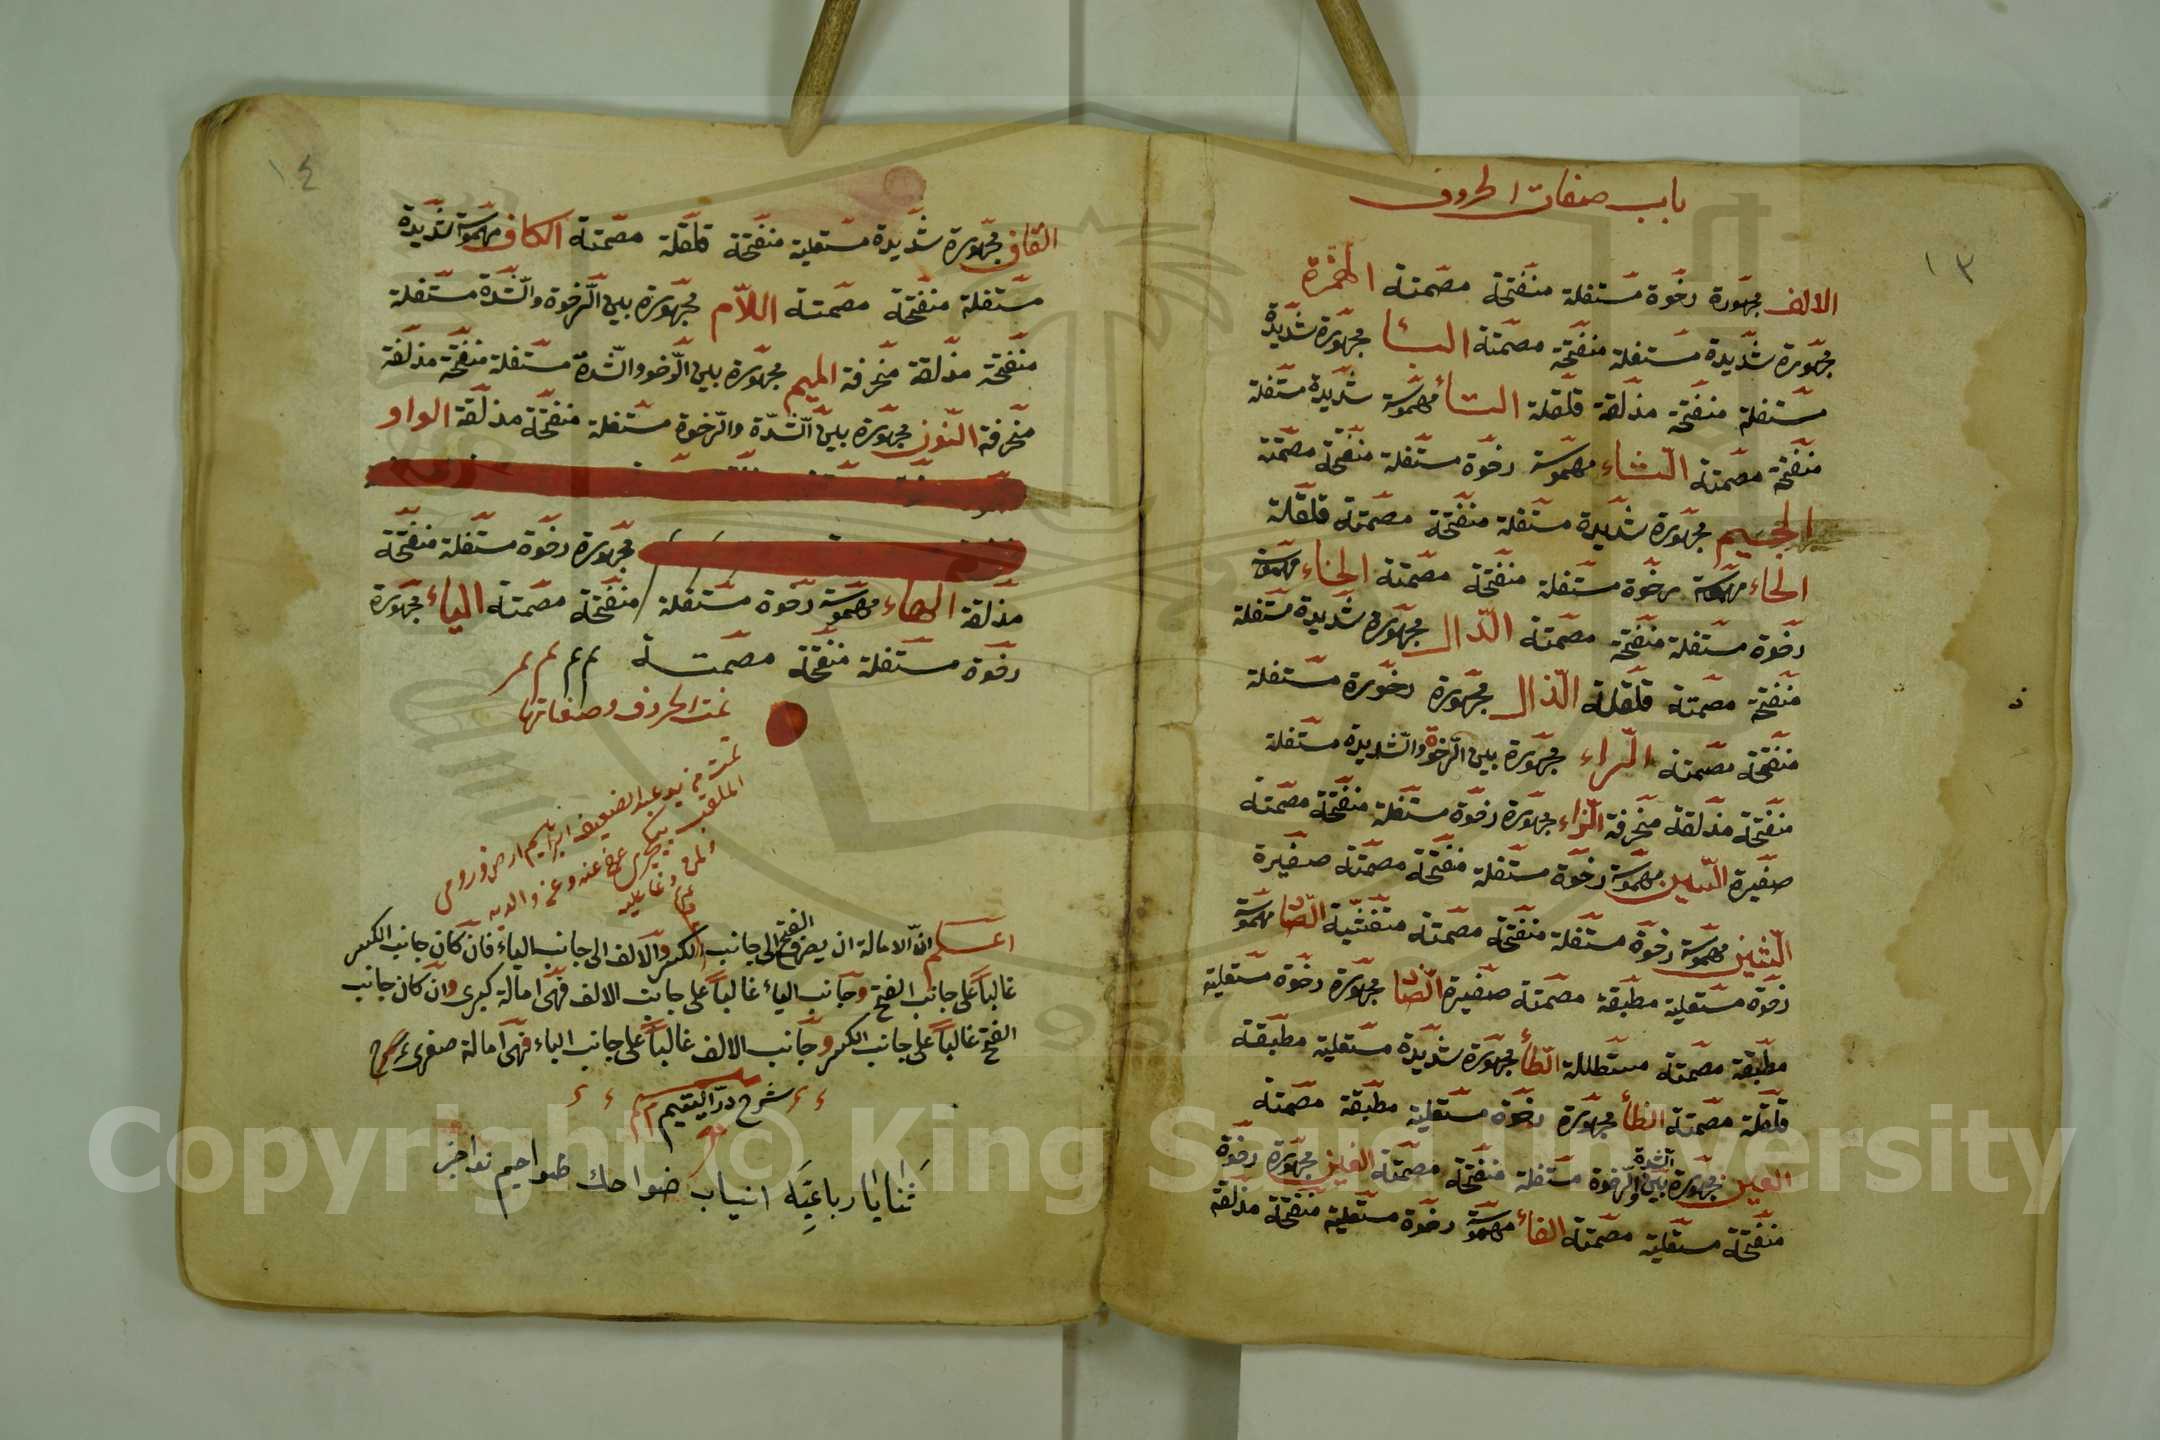 ١٣
باب صفات الحروف
الالف مجهورة رخوة مستفلة منفتحة مصمتة الهمزة
مجهورة شديدة مستفلة منفتحة مصمتة البا مجهورة شديدة
مستفلة منفتحة مذلقة قلقلة التاء مهموسة شديدة مستفلة
منفتحة مصمتة الثاء مهموسة رخوة مستفلة منفتحة مصمتة
الجيم مجهورة شديدة مستفلة منفتحة مصمتة قلقلة
الحاء مهموسة رخوة مستفلة منفتحة مصمتة الخاء مهموسة
رخوة مستفلة منفتحة مصمتة الدال مجهورة شديدة مستفلة
منفتحة مصمتة قلقلة الذال مجهورة رخورة مستفلة
منفتحة مصمتة الراء مجهورة بين الرخوة والشديدة مستفلة
منفتحة مذلقة منحرفة الزاء مجهورة رخوة مستفلة منفتحة مصمتة
صفيرة السين مهموسة رخوة مستفلة منفتحة مصمتة صفيرة
الشين مهموسة رخوة مستفلة منفتحة مصمتة متفشية الصاد مهموسة
رخوة مستعلية مطبقة مصمتة صفيرة الضاد مجهورة رخوة مستعلية
مطبقة مصمتة مستطللة الطأ مجهورة شديدة مستعلية مطبقة
قلقلة مصمتة الظأ مجهورة رخوة مستعلية مطبقة مصمتة
العين مجهورة بين الشدة والرخوة مستفلة منفتحة مصمتة الغين مجهورة رخوة
منفتحة مستعلية مصمتة الفاء مهموسة رخوة مستفلية منفتحة مذلقة
١٤
القاف مجهورة شديدة مستعلية منفتحة قلقلة مصمتة الكاف مهموسة شديدة
مستفلة منفتحة مصمتة اللام مجهورة بين الرخوة والشدة مستفلة
منفتحة مذلقة منحرفة الميم مجهورة بين الرخو والشدة مستفلة منفتحة مذلقة
منحرفة النون مجهورة بين الشدة والرخوة مستفلة منفتحة مذلقة الواو
مجهورة رخوة مستفلة منفتحة
مذلقة الهاء مهموسة رخوة مستفلة منفتحة مصمتة الياء مجهورة
رخوة مستفلة منفتحة مصمتة
تمت الحروف وصفاتها
تمت من يد عبد الضعيف ابراهيم ارضرومى
الملقب عفى عنه وعن والديه
اعلم ان الامالة ان يضع الفتح الى جانب الكسر والالف الى جانب الياء فان كان جانب الكسر
غالباً على جانب الفتح وجانب الياء غالباً على جانب الالف فهى امالة كبرى وان كان جانب
الفتح غالباً على جانب الكسر وجانب الالف غالباً على جانب الياء فهى امالة صغرى
شرح در اليتيم
ثنايا رباعية انياب ضواحك طواحيم نواجز
Copyright © King Saud University